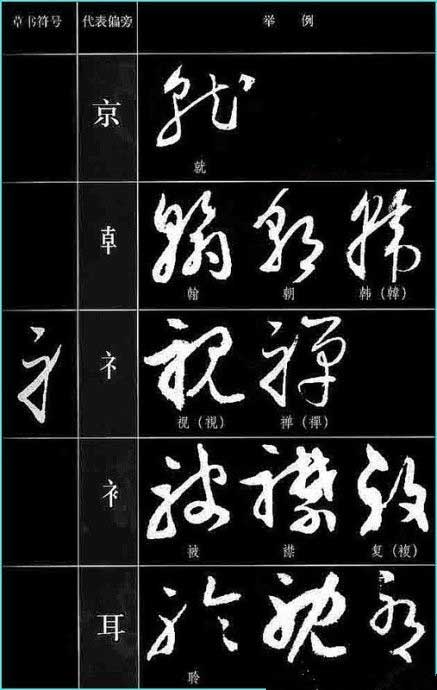 草书符号 代表偏旁 举例
京
就
𠦝
翰 朝 韩（韓）
礻
视（視） 禅（禪）
衤
被 襟 复（複）
耳
聆